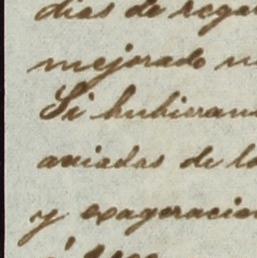 dias de rega
mejorado n
Si hubieran
aviadas de la
y exageracion